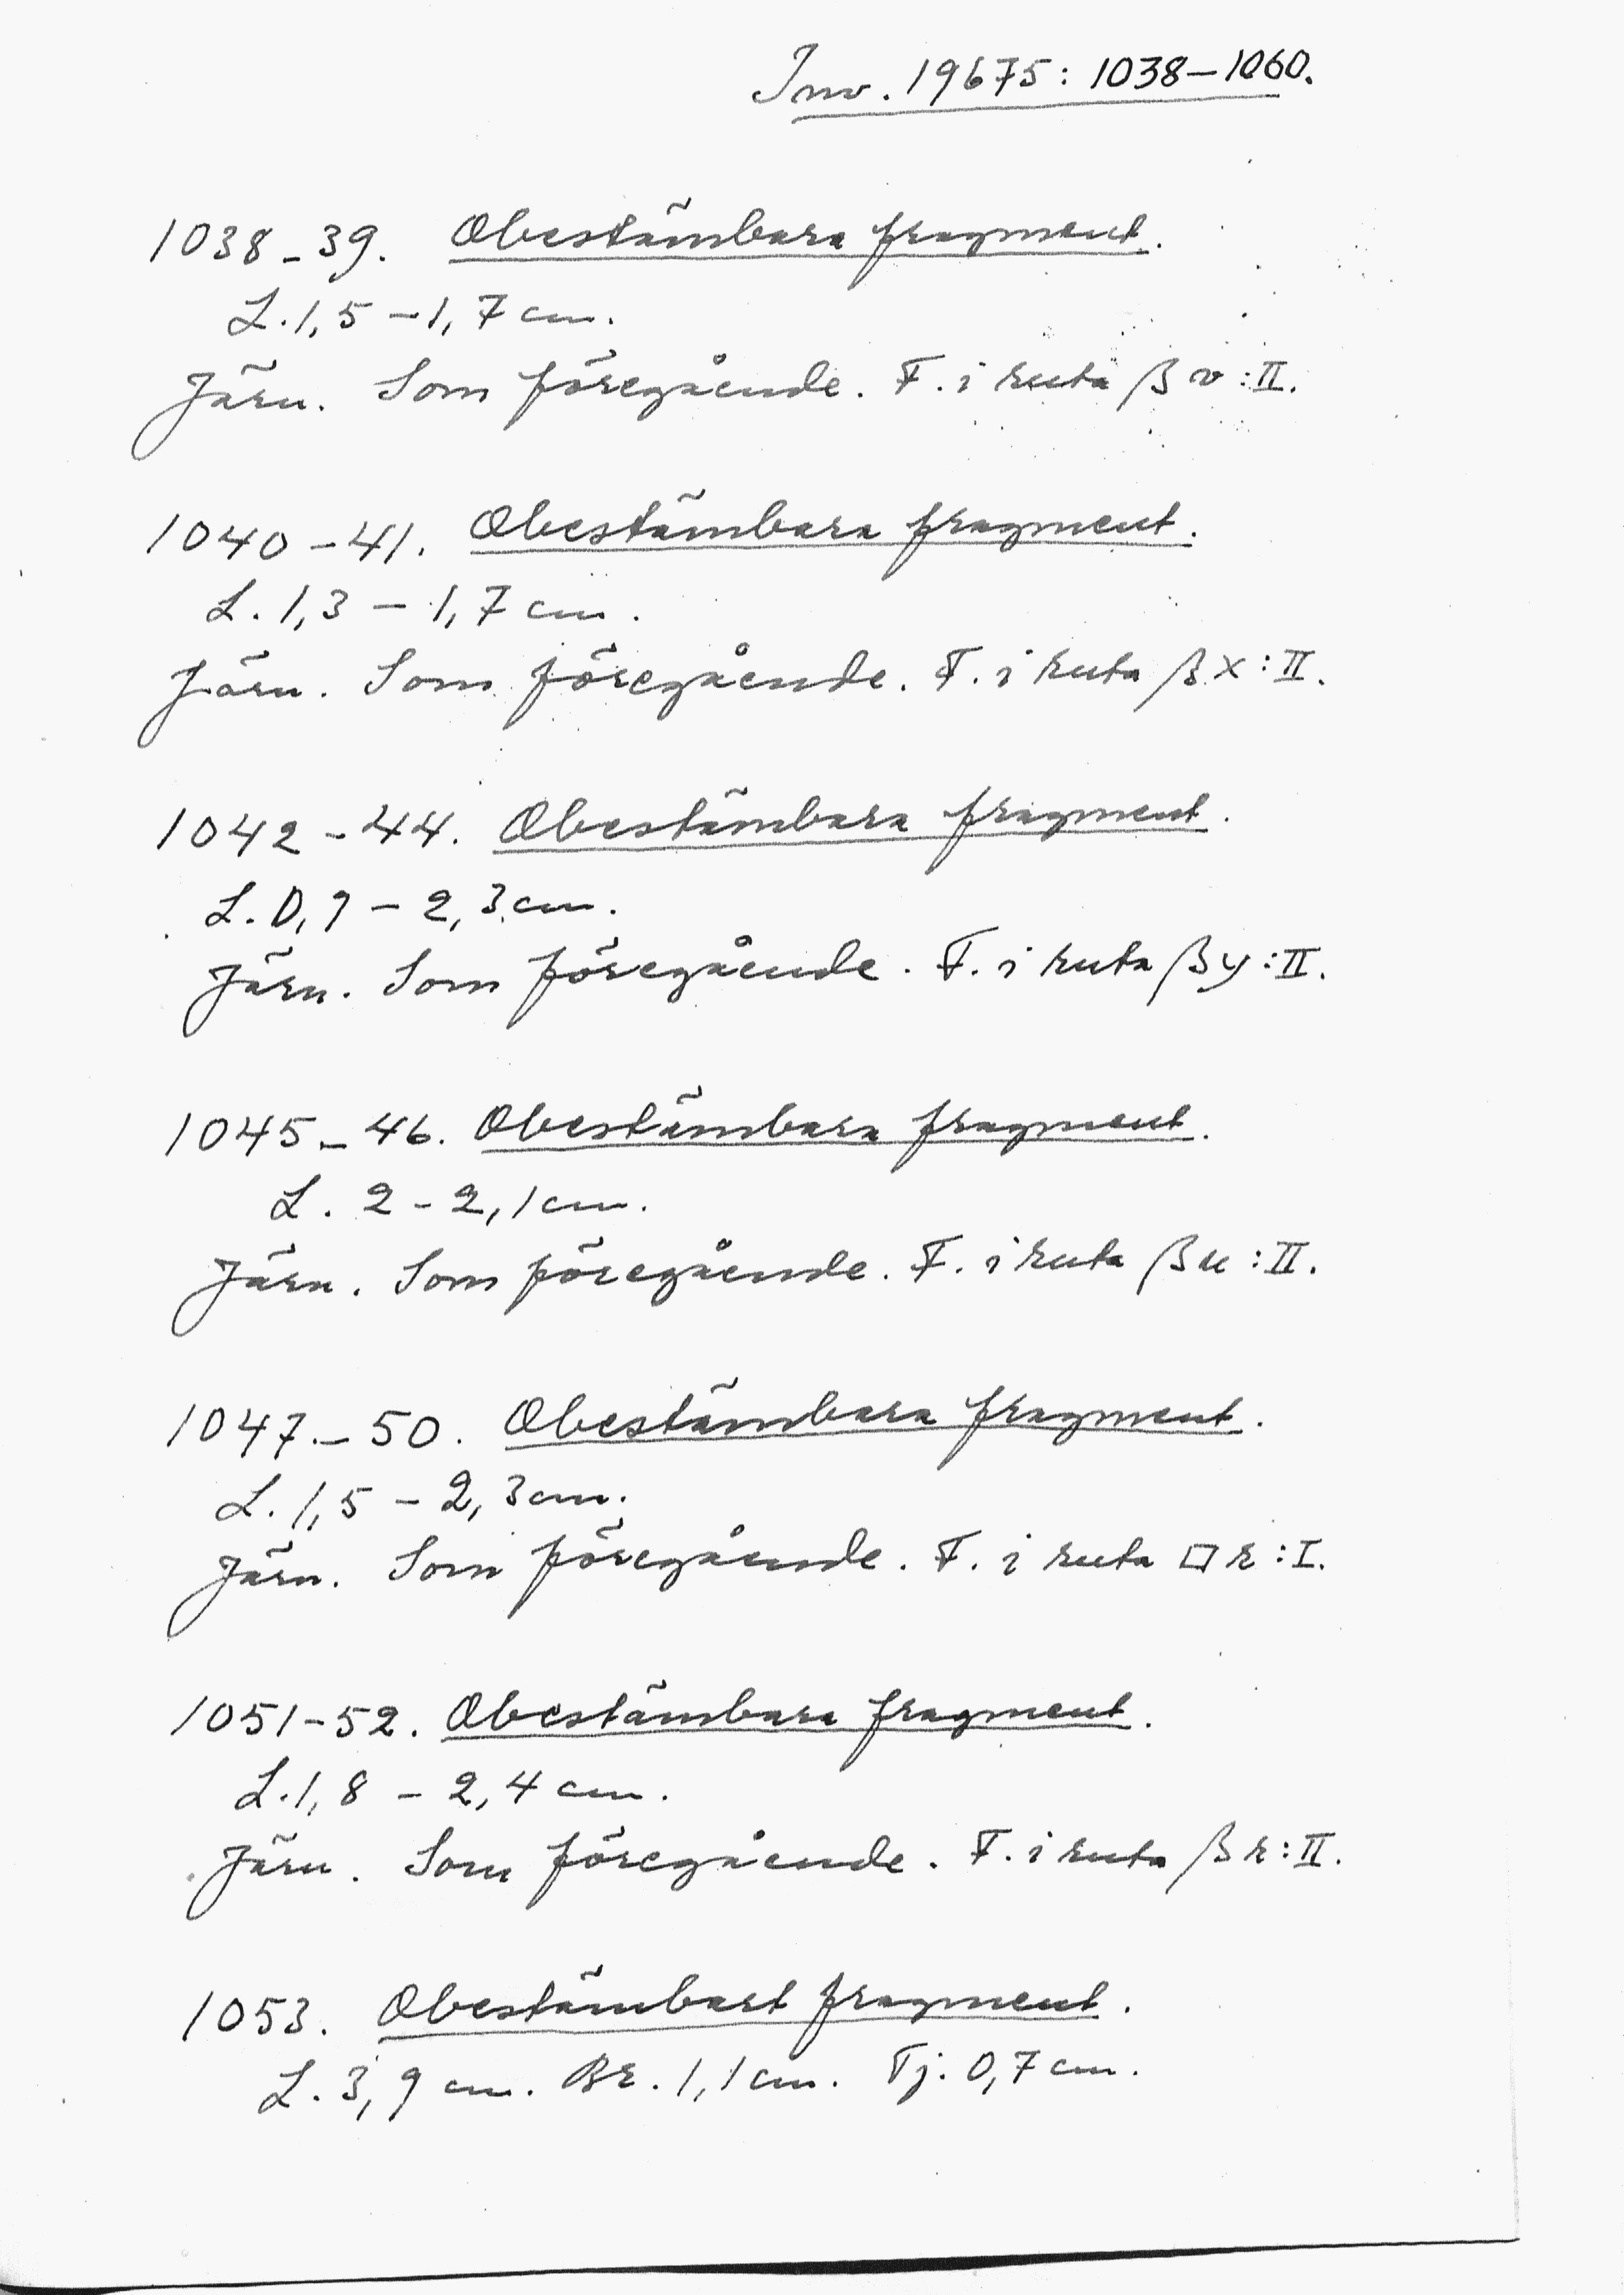 Inv. 19675: 1038–1060.
1038–39. Obestämbara fragment.
L. 1,5 – 1,7 cm.
Järn. Som föregående. F. i ruta β v : II.
1040–41. Obestämbara fragment.
L. 1,3 – 1,7 cm.
Järn. Som föregående. F. i ruta β x : II.
1042–44. Obestämbara fragment.
L. 0,9 – 2,3 cm.
Järn. Som föregående. F. i ruta β y : II.
1045–46. Obestämbara fragment.
L. 2 – 2,1 cm.
Järn. Som föregående. F. i ruta β u : II.
1047–50. Obestämbara fragment.
L. 1,5 – 2,3 cm.
Järn. Som föregående. F. i ruta □ r : I.
1051–52. Obestämbara fragment.
L. 1,8 – 2,4 cm.
Järn. Som föregående. F. i ruta β r : II.
1053. Obestämbart fragment.
L. 3,9 cm. Br. 1,1 cm. Tj. 0,7 cm.